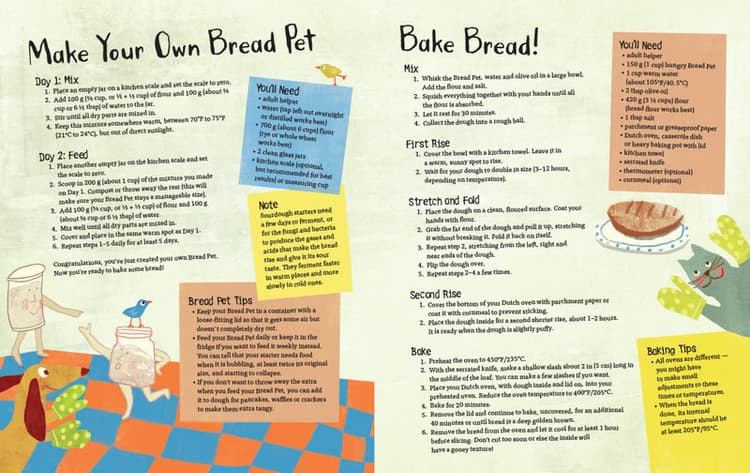 Make Your Own Bread Pet
Day 1: Mix
1. Place an empty jar on a kitchen scale and set the scale to zero.
2. Add 100 g (¾ cup, or ½ + ⅓ cup) of flour and 100 g (about ⅜
cup or 6 ½ tbsp) of water to the jar.
3. Stir until all dry parts are mixed in.
4. Keep this mixture somewhere warm, between 70°F to 75°F
(21°C to 24°C), but out of direct sunlight.
Day 2: Feed
1. Place another empty jar on the kitchen scale and set
the scale to zero.
2. Scoop in 200 g (about 1 cup) of the mixture you made
on Day 1. Compost or throw away the rest (this will
make sure your Bread Pet stays a manageable size).
3. Add 100 g
cup) of flour and 100 g
(about
cup or 6 ½ tbsp) of water.
4. Mix well until all dry parts are mixed in.
5. Cover and place in the same warm spot as Day 1.
6. Repeat steps 1–5 daily for at least 5 days.
Congratulations, you've just created your own Bread Pet.
Now you're ready to bake some bread!
You'll Need
• adult helper
• water (tap left out overnight
or distilled works best)
• 700 g (about 6 cups) flour
(rye or whole wheat
works best)
• 2 clean glass jars
• kitchen scale (optional,
but recommended for best
results) or measuring cup
Note
Sourdough starters need
a few days to ferment, or
for the fungi and bacteria
to produce the gases and
acids that make the bread
rise and give it its sour
taste. They ferment faster
in warm places and more
slowly in cold ones.
Bread Pet Tips
• Keep your Bread Pet in a container with a
loose-fitting lid so that it gets some air but
doesn't completely dry out.
• Feed your Bread Pet daily or keep it in the
fridge if you want to feed it weekly instead.
You can tell that your starter needs food
when it is bubbling, at least twice its original
size, and starting to collapse.
• If you don't want to throw away the extra
when you feed your Bread Pet, you can add
it to dough for pancakes, waffles or crackers
to make them extra tangy.
Bake Bread!
Mix
1. Whisk the Bread Pet, water and olive oil in a large bowl.
Add the flour and salt.
2. Squish everything together with your hands until all
the flour is absorbed.
3. Let it rest for 30 minutes.
4. Collect the dough into a rough ball.
First Rise
1. Cover the bowl with a kitchen towel. Leave it in
a warm, sunny spot to rise.
2. Wait for your dough to double in size (3–12 hours,
depending on temperature).
Stretch and Fold
1. Place the dough on a clean, floured surface. Coat your
hands with flour.
2. Grab the far end of the dough and pull it up, stretching
it without breaking it. Fold it back on itself.
3. Repeat step 2, stretching from the left, right and
near ends of the dough.
4. Flip the dough over.
5. Repeat steps 2–4 a few times.
Second Rise
1. Cover the bottom of your Dutch oven with parchment paper or
coat it with cornmeal to prevent sticking.
2. Place the dough inside for a second shorter rise, about 1–2 hours.
It is ready when the dough is slightly puffy.
Bake
1. Preheat the oven to 450°F/235°C.
2. With the serrated knife, make a shallow slash about 2 in (5 cm) long in
the middle of the loaf. You can make a few slashes if you want.
3. Place your Dutch oven, with dough inside and lid on, into your
preheated oven. Reduce the oven temperature to 400°F/205°C.
4. Bake for 20 minutes.
5. Remove the lid and continue to bake, uncovered, for an additional
40 minutes or until bread is a deep golden brown.
6. Remove the bread from the oven and let it cool for at least 1 hour
before slicing. Don't cut too soon or else the inside will
have a gooey texture!
You'll Need
• adult helper
• 150 g (1 cup) hungry Bread Pet
• 1 cup warm water
(about 105°F/40.5°C)
• 2 tbsp olive oil
• 420 g (3 ½ cups) flour
(bread flour works best)
• 1 tbsp salt
• parchment or greaseproof paper
• Dutch oven, casserole dish
or heavy baking pot with lid
• kitchen towel
• serrated knife
• thermometer (optional)
• cornmeal (optional)
Baking Tips
• All ovens are different —
you might have
to make small
adjustments to these
times or temperatures.
• When the bread is
done, its internal
temperature should be
at least 205°F/95°C.